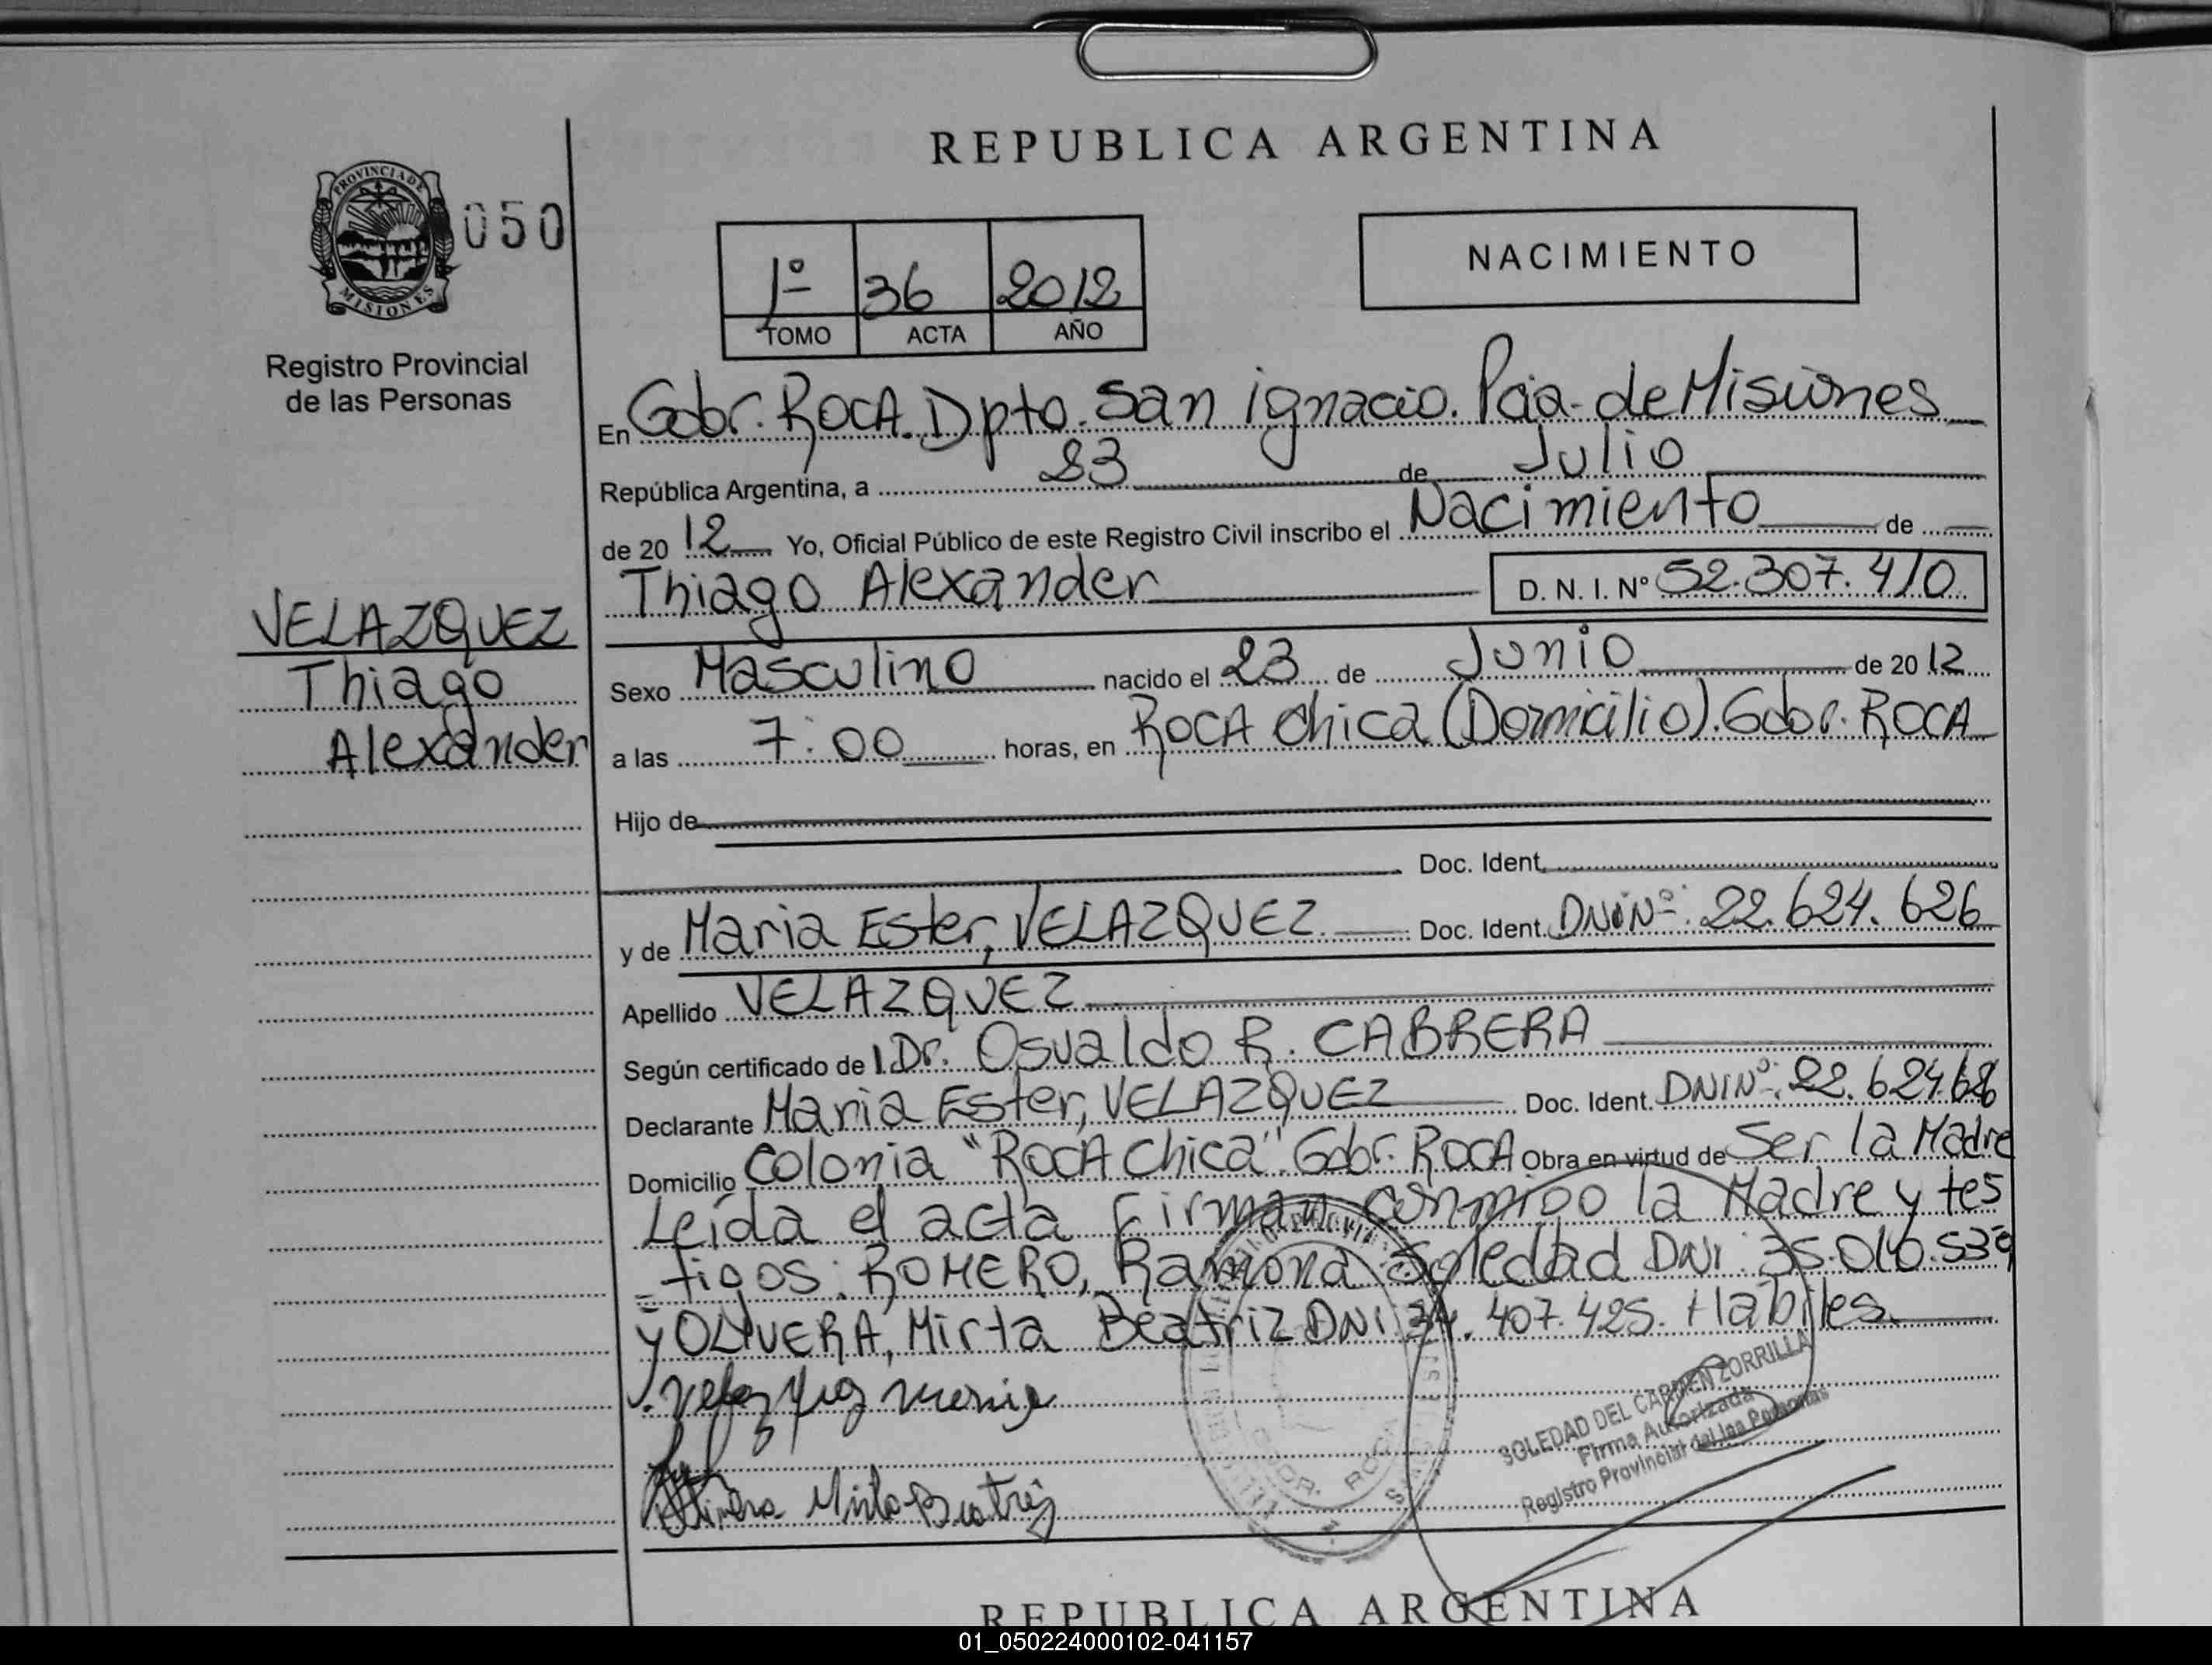 REPUBLICA ARGENTINA
PROVINCIA DE
MISIONES
050
Registro Provincial
de las Personas
1º 36 2012
TOMO ACTA AÑO
NACIMIENTO
En Gdor. ROCA. Dpto. San ignacio. Pcia. de Misiones
República Argentina, a 23 de Julio
de 20 12 Yo, Oficial Público de este Registro Civil inscribo el Nacimiento de
Thiago Alexander D. N. I. Nº 52.307.410
VELAZQUEZ
Thiago
Alexander
Sexo Masculino nacido el 23 de Junio de 20 12
a las 7:00 horas, en ROCA Chica (Domicilio). Gdor. ROCA
Hijo de
Doc. Ident.
y de Maria Ester, VELAZQUEZ Doc. Ident. DNI Nº: 22.624.626
Apellido VELAZQUEZ
Según certificado de l Dr. Osvaldo R. CABRERA
Declarante Maria Ester, VELAZQUEZ Doc. Ident. DNI Nº:
Domicilio Colonia "ROCA Chica" Gdor. ROCA Obra en virtud de Ser la Madre
Leída el acta Firman conmigo la Madre y tes
-tigos: ROMERO, Ramona Soledad DNI
y OLIVERA, Mirta Beatriz DNI 34.407.425. Habiles.
Mirta Beatriz
GDOR. ROCA
SOLEDAD DEL CARMEN ZORRILLA
Firma Autorizada
Registro Provincial de las Personas
REPUBLICA ARGENTINA
01_050224000102-041157